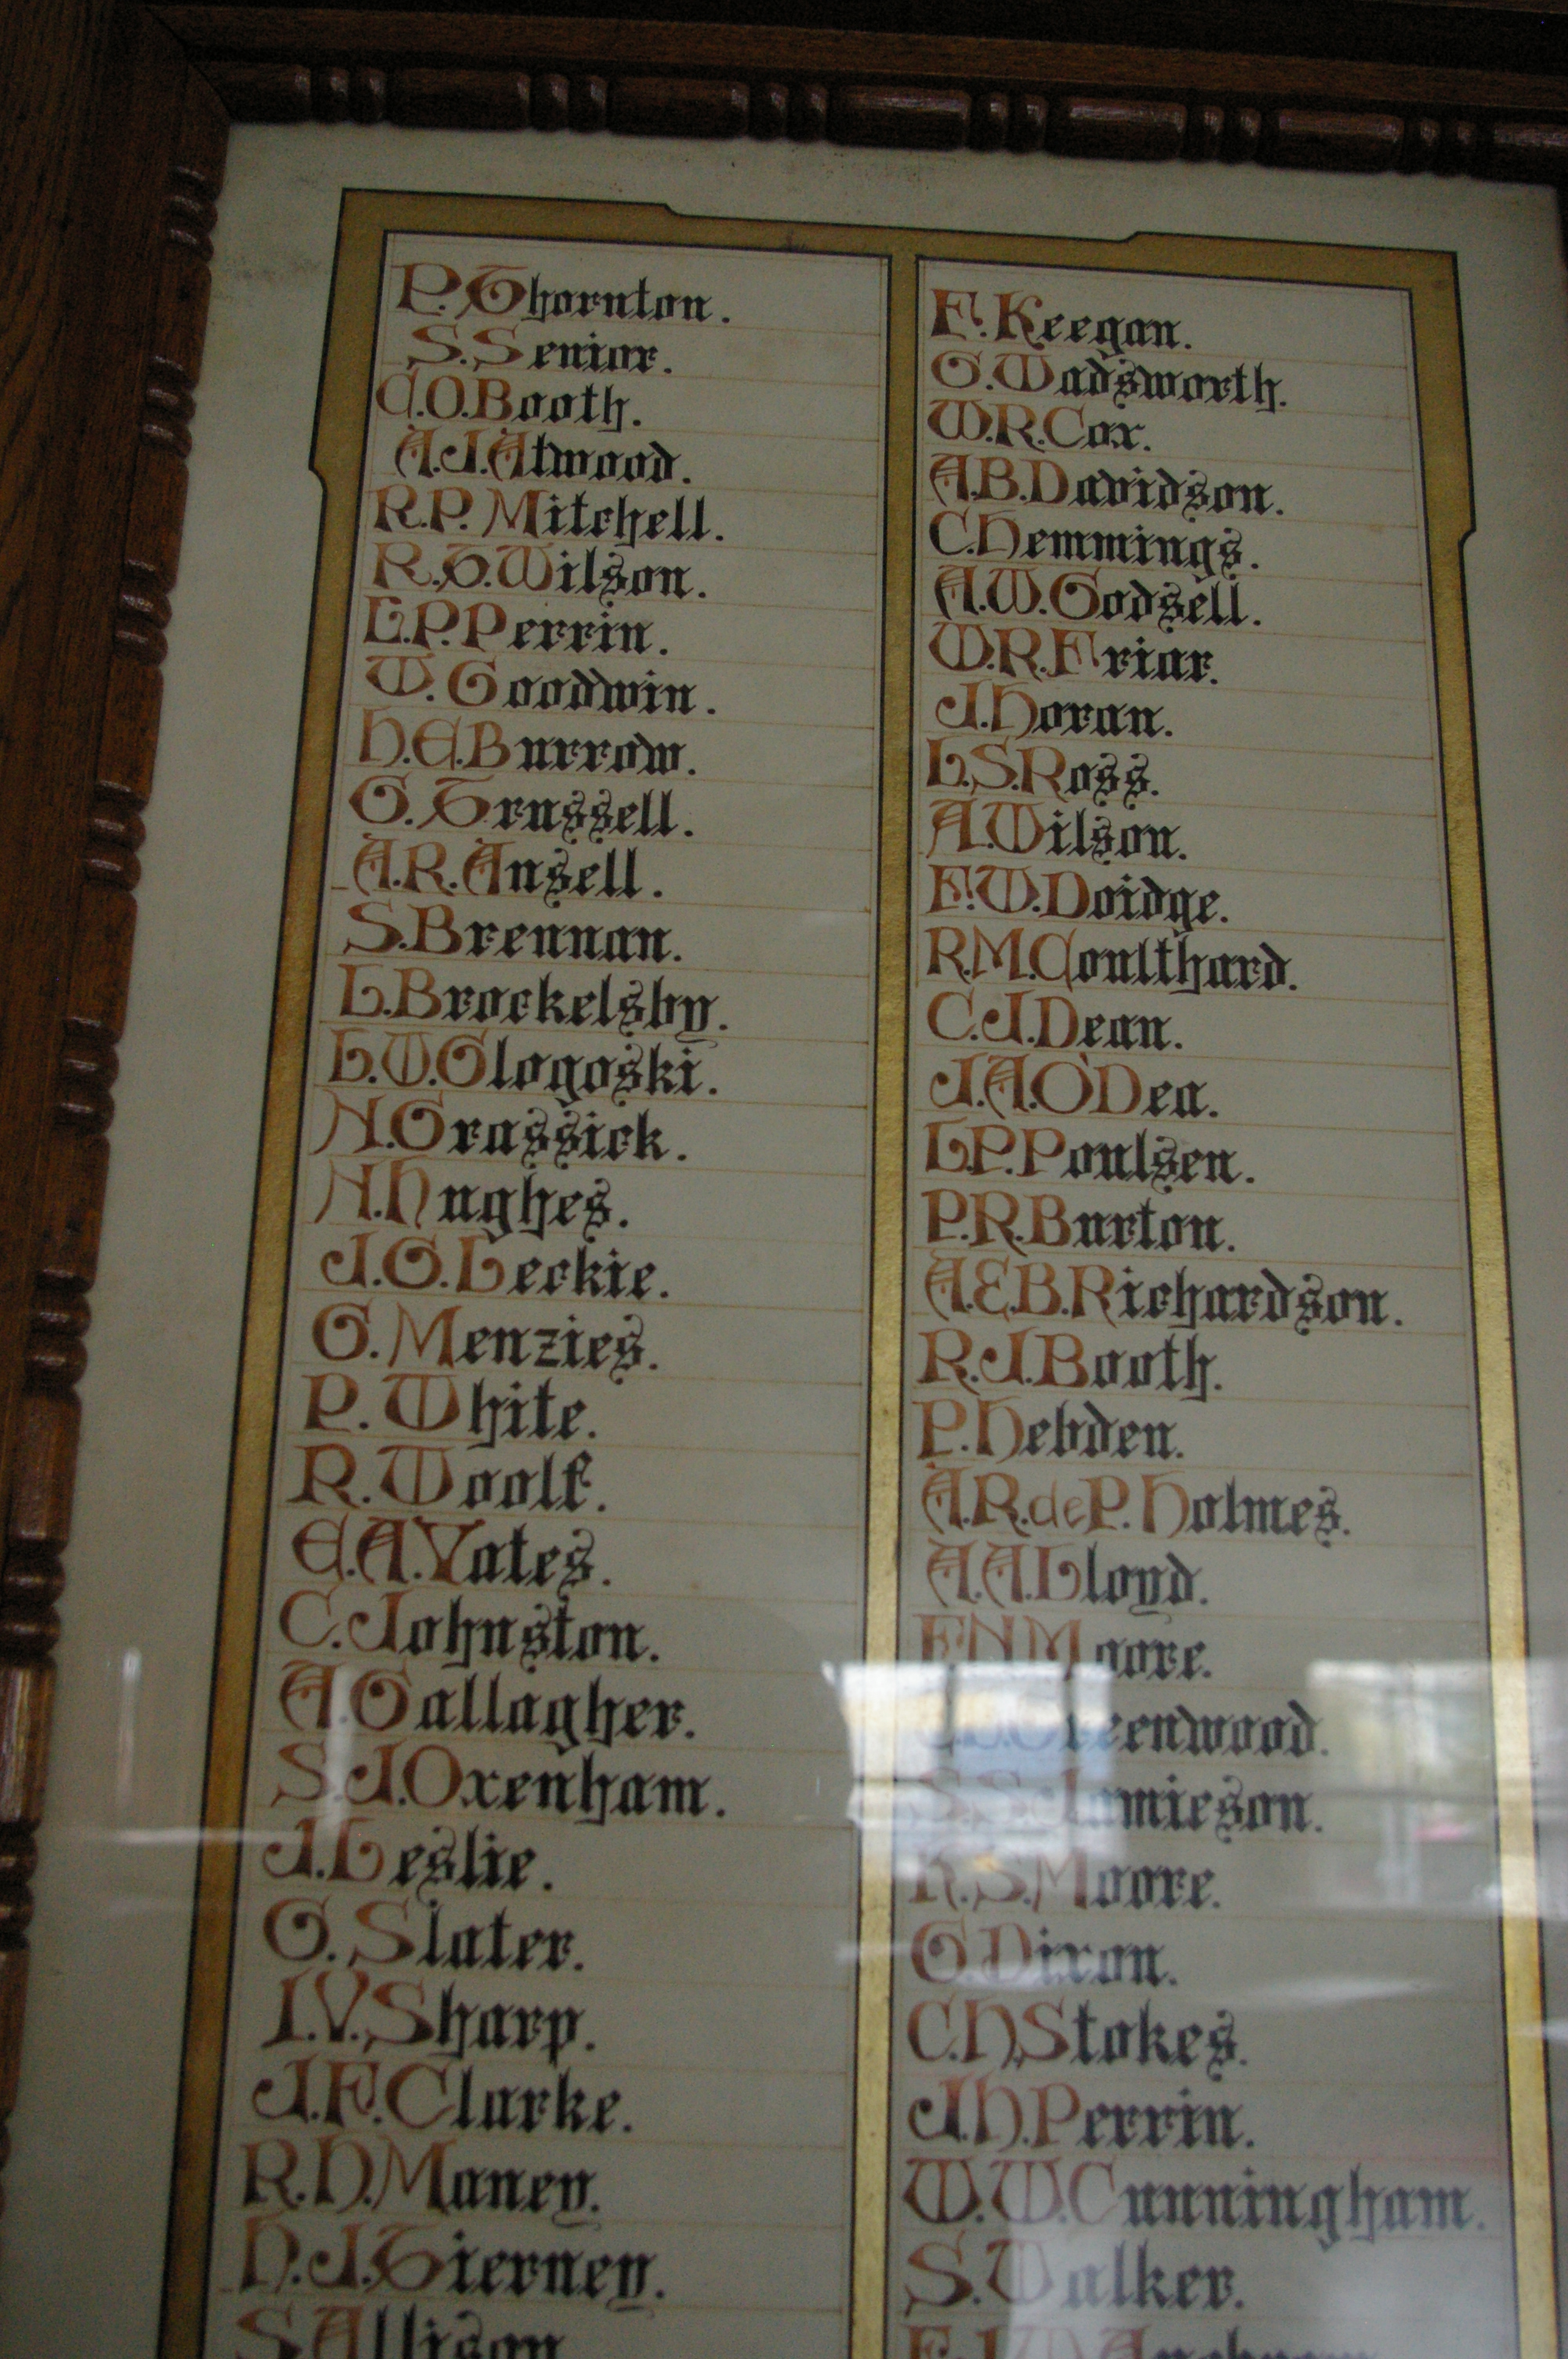 P. Thornton.
S. Senior.
C.O. Booth.
A.J. Atwood.
R.P. Mitchell.
R.T. Wilson.
L.P. Perrin.
W. Goodwin.
H.E. Burrow.
G. Trussell.
A.R. Ansell.
S. Brennan.
L. Brockelsby.
L.W. Glogoski.
N. Grassick.
N. Hughes.
J.G. Leckie.
G. Menzies.
P. White.
R. Woolf.
E.A. Yates.
C. Johnston.
A. Gallagher.
S.J. Oxenham.
J. Leslie.
G. Slater.
I.V. Sharp.
J.F. Clarke.
R.H. Maney.
H.J. Tierney.
S. Allison
F. Keegan.
G. Wadsworth.
W.R. Cox.
A.B. Davidson.
C. Hemmings.
A.W. Godsell.
W.R. Friar.
J. Horan.
L.S. Ross.
A. Wilson.
F.W. Doidge.
R.M. Coulthard.
C.J. Dean.
J.A. O'Dea.
L.P. Poulsen.
P.R. Burton.
A.E.B. Richardson.
R.J. Booth.
P. Hebden.
A.R. de P. Holmes.
A.A. Lloyd.
F.N. Moore.
Greenwood.
S.S. Jamieson.
R.S. Moore.
G. Dixon.
C.H. Stokes.
J.H. Perrin.
W.W. Cunningham.
S. Walker.